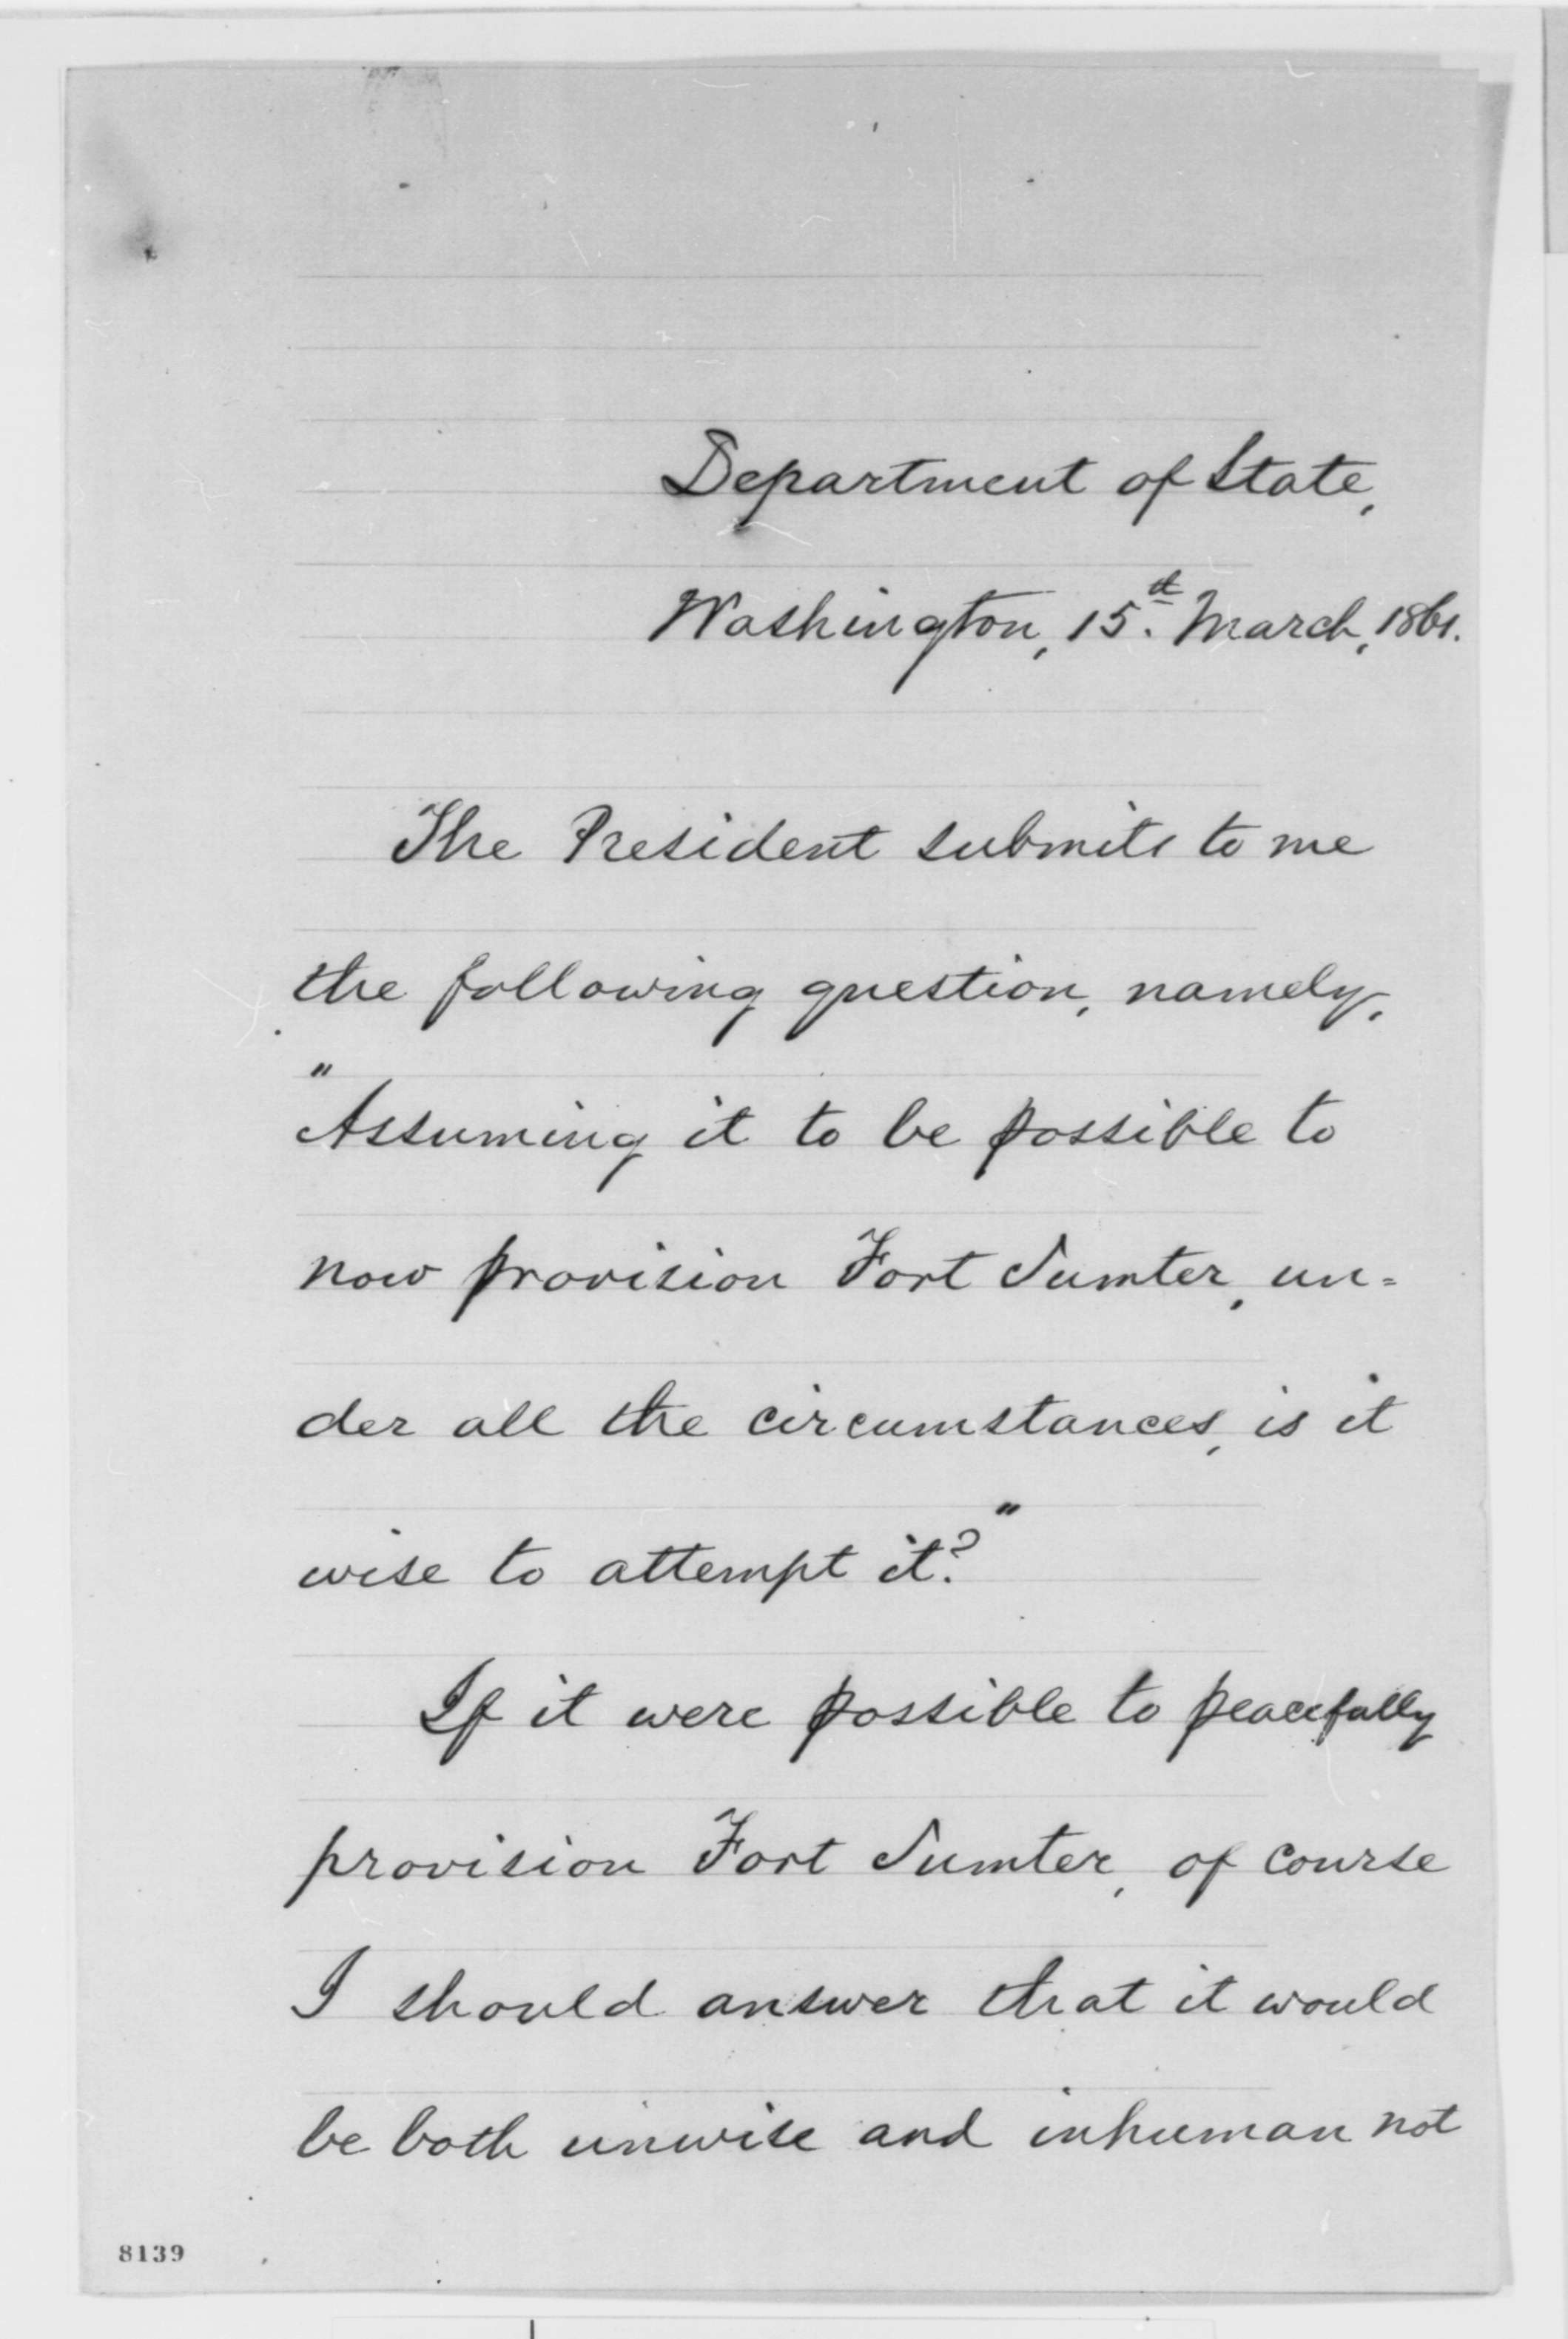 Department of State,
Washington, 15th. March, 1861.
The President submits to me
the following question, namely,
"Assuming it to be possible to
now provision Fort Sumter, un=
der all the circumstances, is it
wise to attempt it?"
If it were possible to peacefully
provision Fort Sumter, of course
I should answer that it would
be both unwise and inhuman not
8139